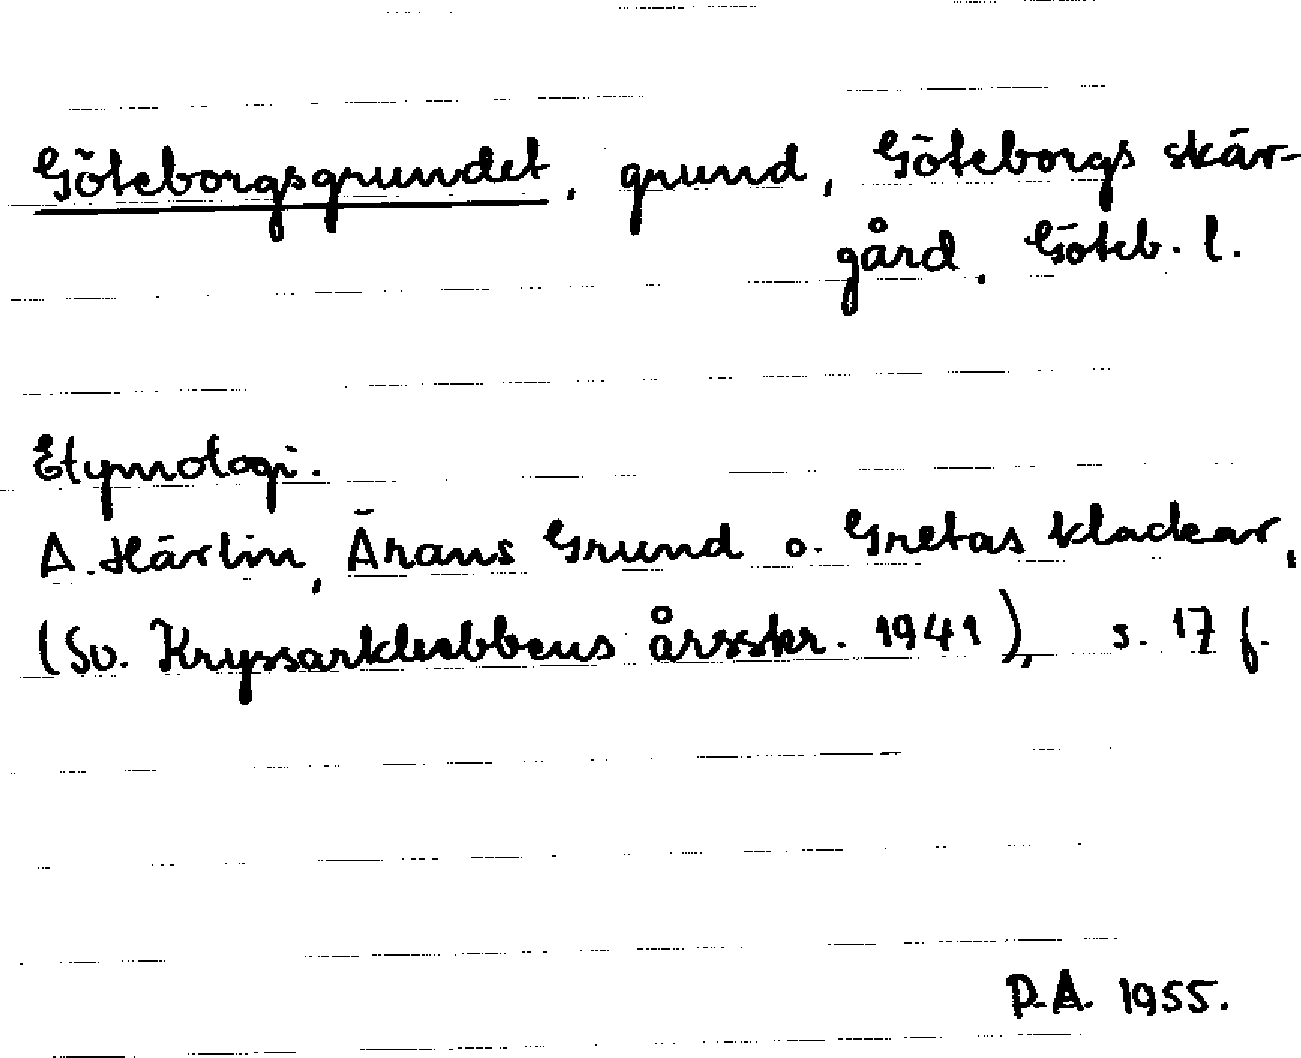 Göteborgsgrundet, grund, Göteborgs skär-
gård. Göteb. l.
Etymologi.
A. Härlin, Ärans Grund o. Gretas klackar,
(Sv. Kryssarklubbens årsskr. 1941), s. 17 f.
P.A. 1955.